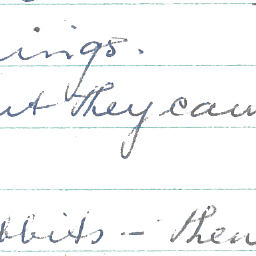 ings.
ut they cam
bbits - then